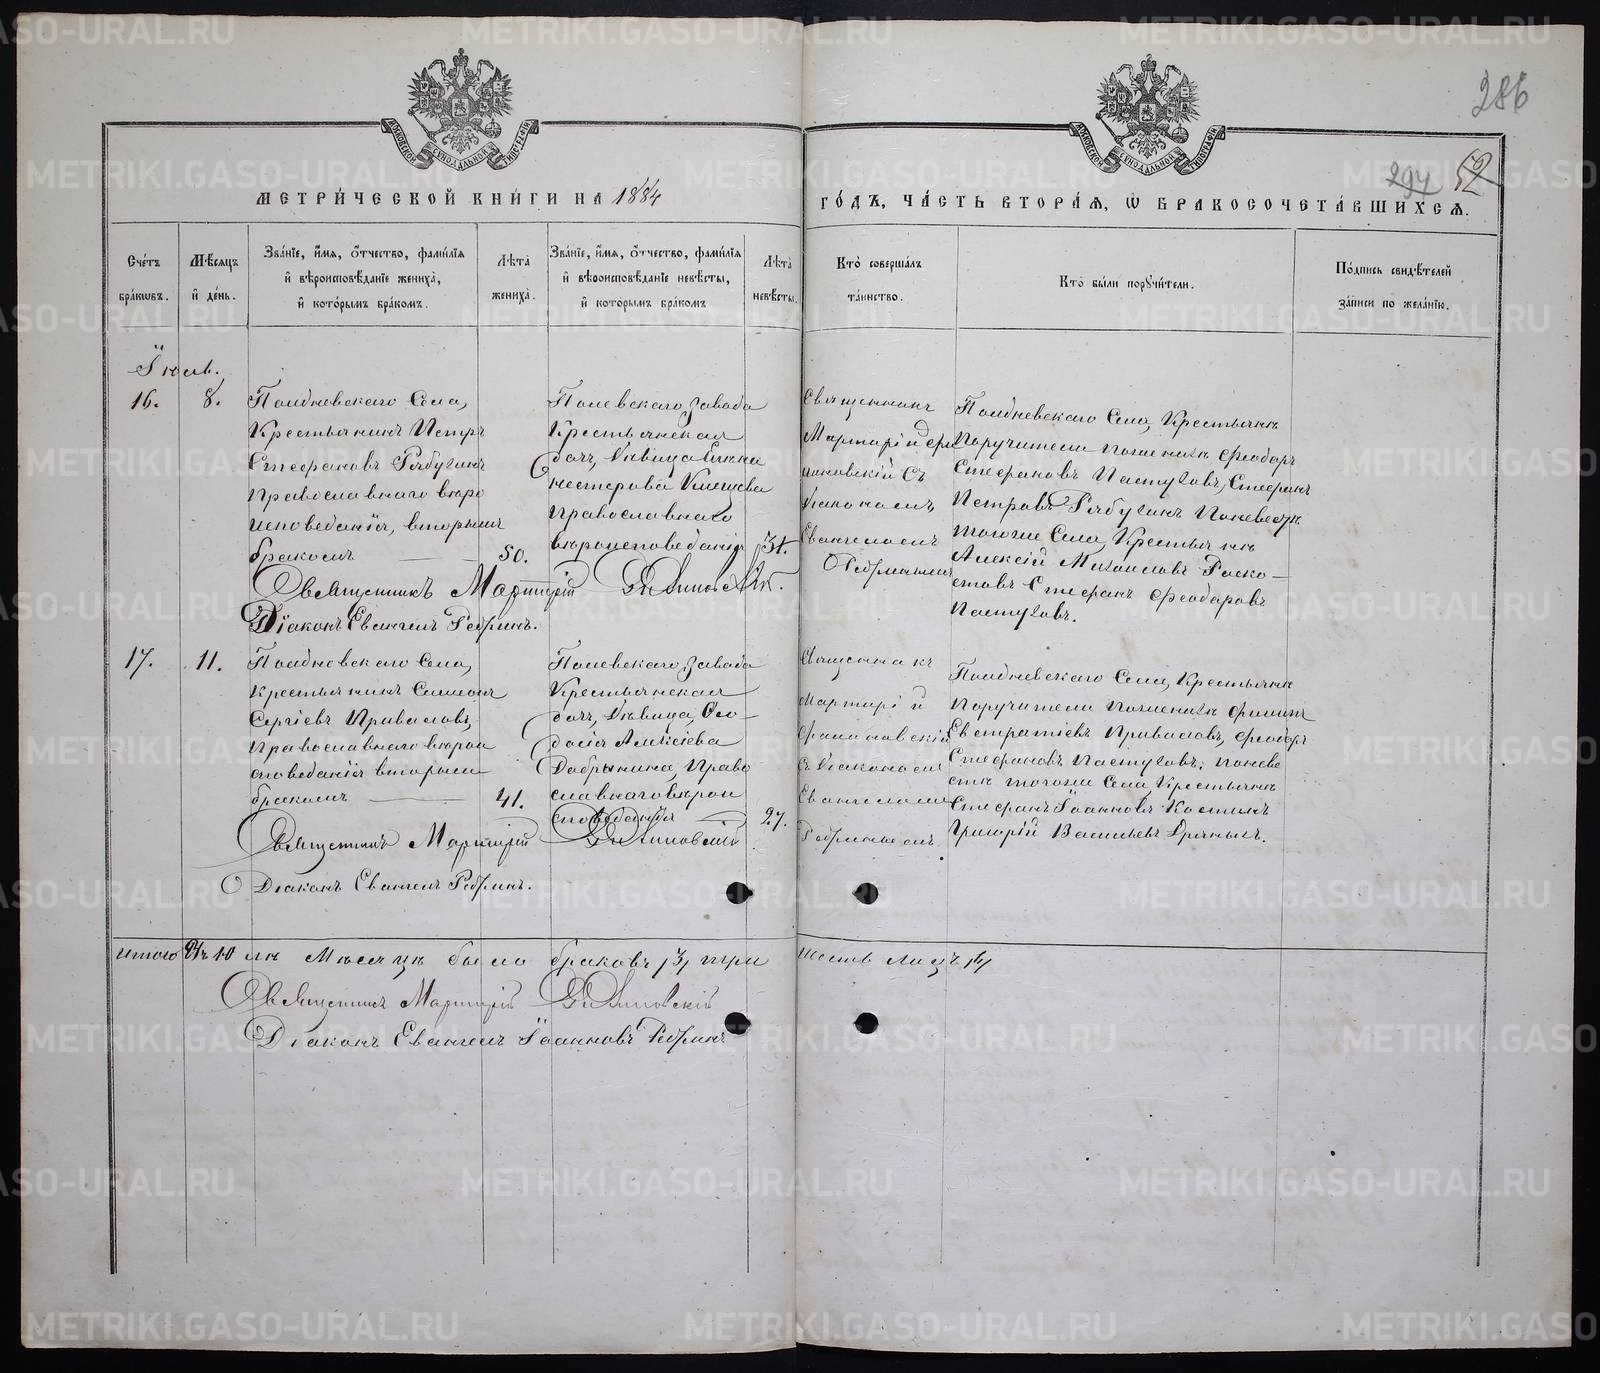 286
294 52
МОСКОВСКОЙ СУНОДАЛЬНОЙ ТИПОГРАФІИ
МОСКОВСКОЙ СУНОДАЛЬНОЙ ТИПОГРАФІИ
МЕТРИ́ЧЕСКОЙ КНИ́ГИ НА 1884
ГО́ДЪ, ЧА́СТЬ ВТОРА́Ѧ, Ѡ БРАКОСОЧЕТА́ВШИХСѦ.
Сче́тъ бра́кѡвъ.
Мѣ́сѧцъ и҆ де́нь.
Зва́нїе, и҆́мѧ, ѻ҆́тчество, фами́лїѧ и҆ вѣроисповѣ́данїе жениха̀, и҆ кото́рымъ бра́комъ.
Лѣта̀ жениха̀.
Зва́нїе, и҆́мѧ, ѻ҆́тчество, фами́лїѧ и҆ вѣроисповѣ́данїе невѣ́сты, и҆ кото́рымъ бра́комъ
Лѣта̀ невѣ́сты.
Кто̀ соверша́лъ та́инство.
Кто̀ бы́ли порꙋчи́тели.
По́дпись свидѣ́телей за́писи по жела́нїю.
Іюль.
16.
8.
Полдневскаго Села,
Крестьянинъ Петръ
Стефановъ Рябухинъ
Православнаго вѣро
исповеданія, вторымъ
бракомъ
50.
Полевскаго завода
Крестьянская
дочь, дѣвица
Нестерова Клещева
Православнаго
вѣроисповеданія
31.
Священникъ
Мартирій
линовскій Съ
Діакономъ
Евангеломъ
Ребринымъ
Полдневскаго Села, Крестьяне
Поручители по женихе Феодоръ
Стефановъ Пастуховъ, Стефанъ
Петровъ Рябухинъ По невесте
тогоже Села, Крестьяне
Алексій Михаиловъ Голко-
стовъ Стефанъ Феодоровъ
Пастуховъ.
Священникъ Мартирій
Діаконъ Евангелъ Ребринъ.
17.
11.
Полдневскаго Села,
Крестьянинъ Симеонъ
Сергіевъ Приваловъ,
Православнаго вѣрои
споведанія вторымъ
бракомъ
41.
Полевскаго завода
Крестьянская
дочь, Дѣвица, Фео-
досія Алексіева
Добрынина, Право
славнаго вѣрои
споведанія
27.
Священникъ
Мартирій
съ Діакономъ
Евангеломъ
Ребринымъ
Полдневскаго Села, Крестьяне
Поручители по женихе Филипъ
Евстратіевъ Приваловъ, Феодоръ
Стефановъ Пастуховъ; по неве
сте тогоже Села, Крестьяне
Стефанъ Іоанновъ Костинъ
Григорій Васильевъ Дрянныхъ.
Священникъ Мартирій
Діаконъ Евангелъ Ребринъ.
Итого Въ Юлѣ Месяце было браковъ /3/ три
шесть лицъ /6/
Священникъ Мартирій
Діаконъ Евангелъ Іоанновъ Ребринъ
METRIKI.GASO-URAL.RU